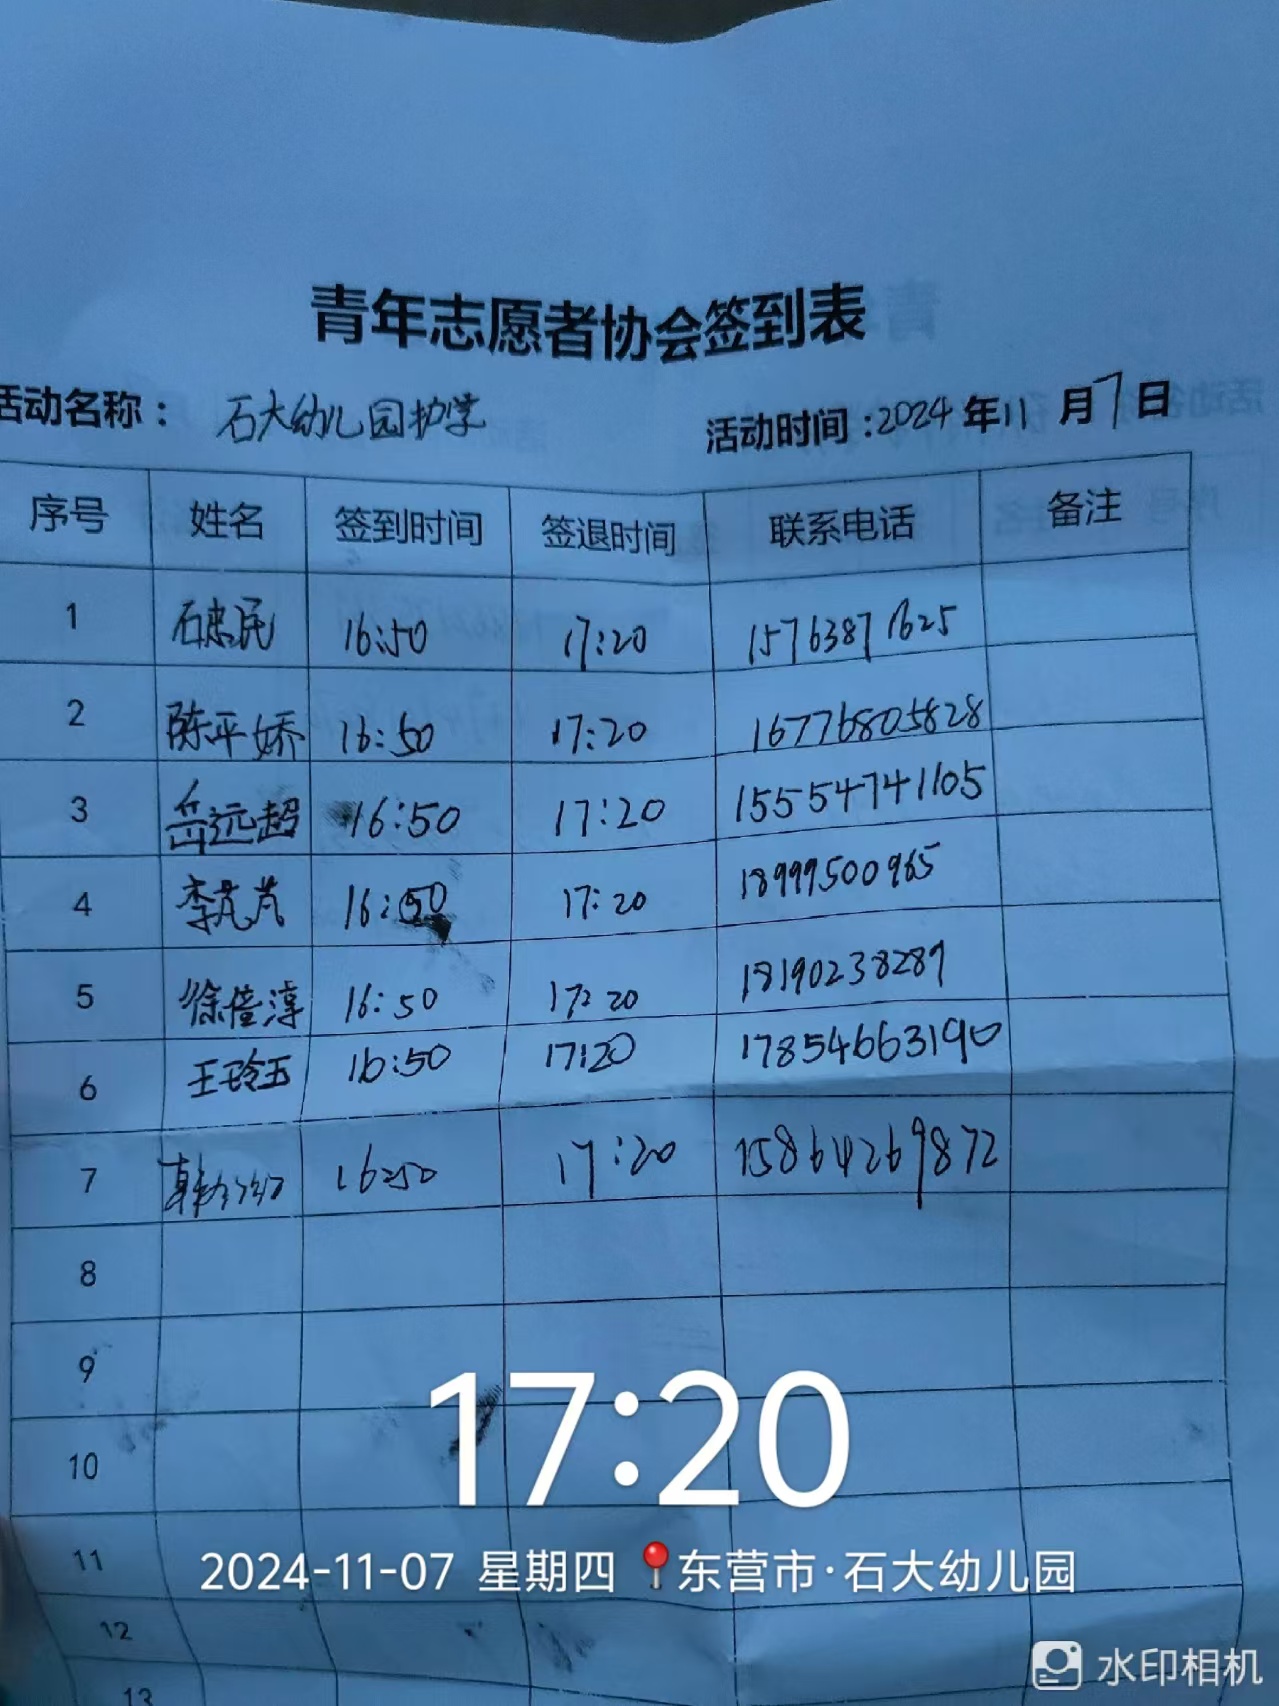 青年志愿者协会签到表
活动名称： 石大幼儿园护学
活动时间：2024年11月7日
序号 姓名 签到时间 签退时间 联系电话 备注
1 石忠民 16:50 17:20 15763871625
2 陈平娇 16:50 17:20 16776805828
3 岳远超 16:50 17:20 15554741105
4 李芃芃 16:50 17:20 18999500965
5 徐倍淳 16:50 17:20 18190238289
6 王玲玉 16:50 17:20 17854663190
7 韩 16:50 17:20 15864269872
8
9
10
11
12
13
17:20
2024-11-07 星期四 东营市·石大幼儿园
水印相机